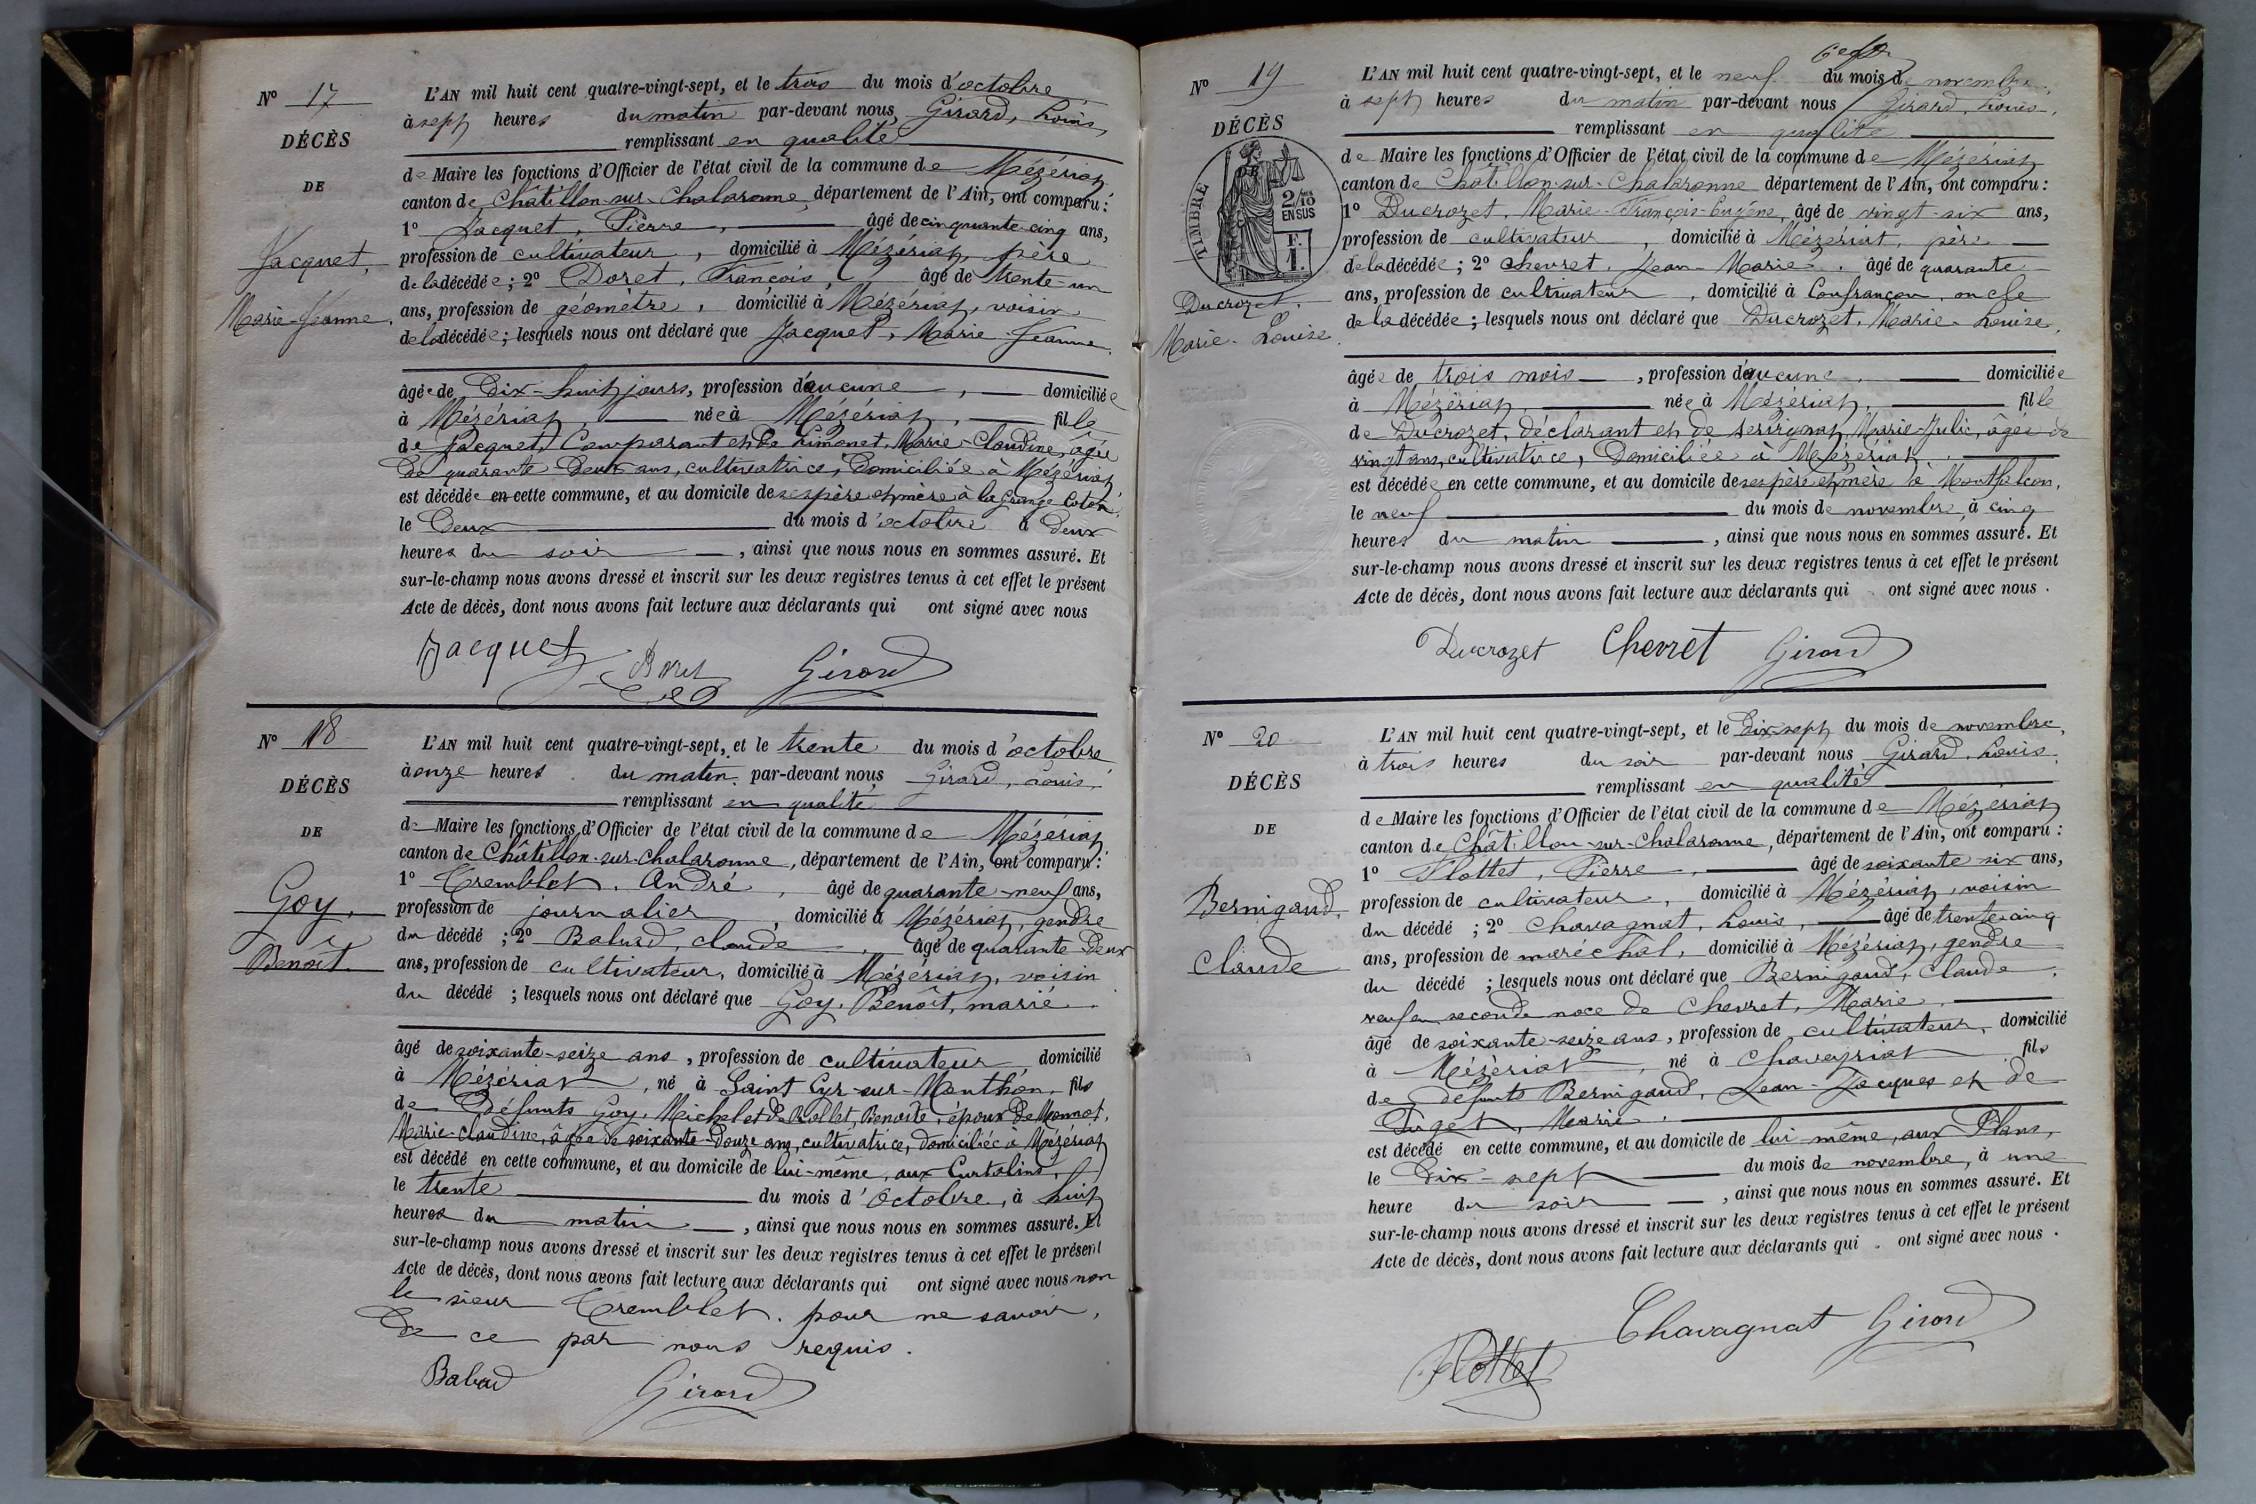 N° 17
DÉCÈS
DE
Jacquet,
Marie-Jeanne.
L'AN mil huit cent quatre-vingt-sept, et le trois du mois d'octobre
à sept heures du matin par-devant nous, Girard, Louis,
remplissant en qualité
de Maire les fonctions d'Officier de l'état civil de la commune de Mézériat
canton de Châtillon-sur-Chalaronne, département de l'Ain, ont comparu :
1° Jacquet, Pierre, âgé de cinquante-cinq ans,
profession de cultivateur, domicilié à Mézériat, père
de la décédée ; 2° Doret, François, âgé de trente-un
ans, profession de géomètre, domicilié à Mézériat, voisin
de la décédée ; lesquels nous ont déclaré que Jacquet, Marie-Jeanne,
âgée de Dix-huit jours, profession d'aucune, domiciliée
à Mézériat, née à Mézériat, fille
de Jacquet, Comparant et de Limonet, Marie-Claudine, âgée
de quarante Deux ans, cultivatrice, Domiciliée à Mézériat
est décédée en cette commune, et au domicile de ses père et mère à la Grange Coton
le Deux du mois d'octobre à Deux
heures du soir, ainsi que nous nous en sommes assuré. Et
sur-le-champ nous avons dressé et inscrit sur les deux registres tenus à cet effet le présent
Acte de décès, dont nous avons fait lecture aux déclarants qui ont signé avec nous
Jacquet Girard
N° 18
DÉCÈS
DE
Goy,
Benoît.
L'AN mil huit cent quatre-vingt-sept, et le trente du mois d'octobre
à onze heures du matin par-devant nous Girard, Louis,
remplissant en qualité
de Maire les fonctions d'Officier de l'état civil de la commune de Mézériat
canton de Châtillon-sur-Chalaronne, département de l'Ain, ont comparu :
1° Tremblet, André, âgé de quarante-neuf ans,
profession de journalier, domicilié à Mézériat, gendre
du décédé ; 2° Baburd, Claude, âgé de quarante Deux
ans, profession de cultivateur, domicilié à Mézériat, voisin
du décédé ; lesquels nous ont déclaré que Goy, Benoît, marié.
âgé de soixante-seize ans, profession de cultivateur, domicilié
à Mézériat, né à Saint Cyr-sur-Menthon, fils
de Défunts Goy, Michel et de Rollet, Benoite, époux de Monnot,
Marie-Claudine, âgée de soixante-Douze ans, cultivatrice, domiciliée à Mézériat
est décédé en cette commune, et au domicile de lui-même, aux Curtalins,
le trente du mois d'octobre, à huit
heures du matin, ainsi que nous nous en sommes assuré. Et
sur-le-champ nous avons dressé et inscrit sur les deux registres tenus à cet effet le présent
Acte de décès, dont nous avons fait lecture aux déclarants qui ont signé avec nous non
le sieur Tremblet. pour ne savoir,
De ce par nous requis.
Girard
N° 19
DÉCÈS
TIMBRE
2/10
EN SUS
F.
1.
Ducrozet.
Marie-Louise.
L'AN mil huit cent quatre-vingt-sept, et le neuf du mois de novembre,
à sept heures du matin par-devant nous Girard, Louis,
remplissant en qualité
de Maire les fonctions d'Officier de l'état civil de la commune de Mézériat
canton de Châtillon-sur-Chalaronne département de l'Ain, ont comparu :
1° Ducrozet, Marie-François-Eugène, âgé de vingt-six ans,
profession de cultivateur, domicilié à Mézériat, père
de la décédée ; 2° Chevret, Jean-Marie, âgé de quarante
ans, profession de cultivateur, domicilié à Confrançon, oncle
de la décédée ; lesquels nous ont déclaré que Ducrozet, Marie-Louise,
âgée de trois mois, profession d'aucune, domiciliée
à Mézériat, née à Mézériat, fille
de Ducrozet, déclarant et de Marie-Julie, âgée de
vingt ans, cultivatrice, Domiciliée à Mézériat,
est décédée en cette commune, et au domicile de ses père et mère à Montfalcon,
le neuf du mois de novembre, à cinq
heures du matin, ainsi que nous nous en sommes assuré. Et
sur-le-champ nous avons dressé et inscrit sur les deux registres tenus à cet effet le présent
Acte de décès, dont nous avons fait lecture aux déclarants qui ont signé avec nous.
Ducrozet Chevret Girard
N° 20
DÉCÈS
DE
Bernigaud,
Claude
L'AN mil huit cent quatre-vingt-sept, et le Dix-sept du mois de novembre,
à trois heures du soir par-devant nous Girard, Louis,
remplissant en qualité
de Maire les fonctions d'Officier de l'état civil de la commune de Mézériat
canton de Châtillon-sur-Chalaronne, département de l'Ain, ont comparu :
1° Flottet, Pierre, âgé de soixante-six ans,
profession de cultivateur, domicilié à Mézériat, voisin
du décédé ; 2° Chavagnat, Louis, âgé de trente cinq
ans, profession de maréchal, domicilié à Mézériat, gendre
du décédé ; lesquels nous ont déclaré que Bernigaud, Claude,
veuf en seconde noce de Chevret, Marie,
âgé de soixante-seize ans, profession de cultivateur, domicilié
à Mézériat, né à Chaveyriat fils
de défunts Bernigaud, Jean-Jacques et de
Puget, Marie.
est décédé en cette commune, et au domicile de lui-même, aux Plans,
le Dix-sept du mois de novembre, à une
heure du soir, ainsi que nous nous en sommes assuré. Et
sur-le-champ nous avons dressé et inscrit sur les deux registres tenus à cet effet le présent
Acte de décès, dont nous avons fait lecture aux déclarants qui ont signé avec nous.
Flottet Chavagnat Girard